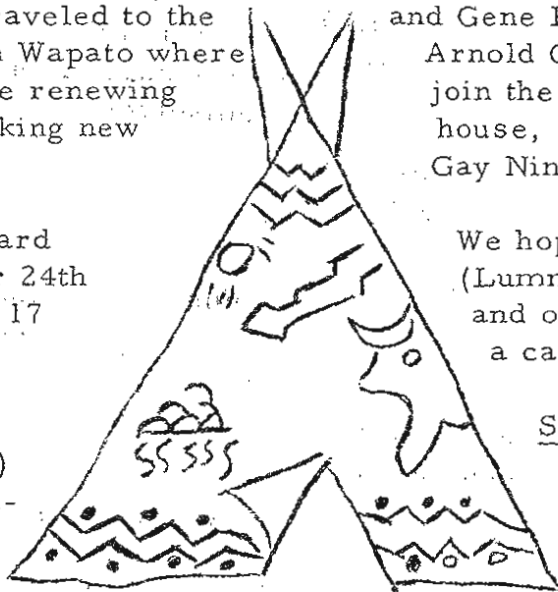 aveled to the
Wapato where
e renewing
king new
ard
24th
17
)
-
and Gene
Arnold
join the
house,
Gay Nin
We hop
(Lumm
and o
a ca
S